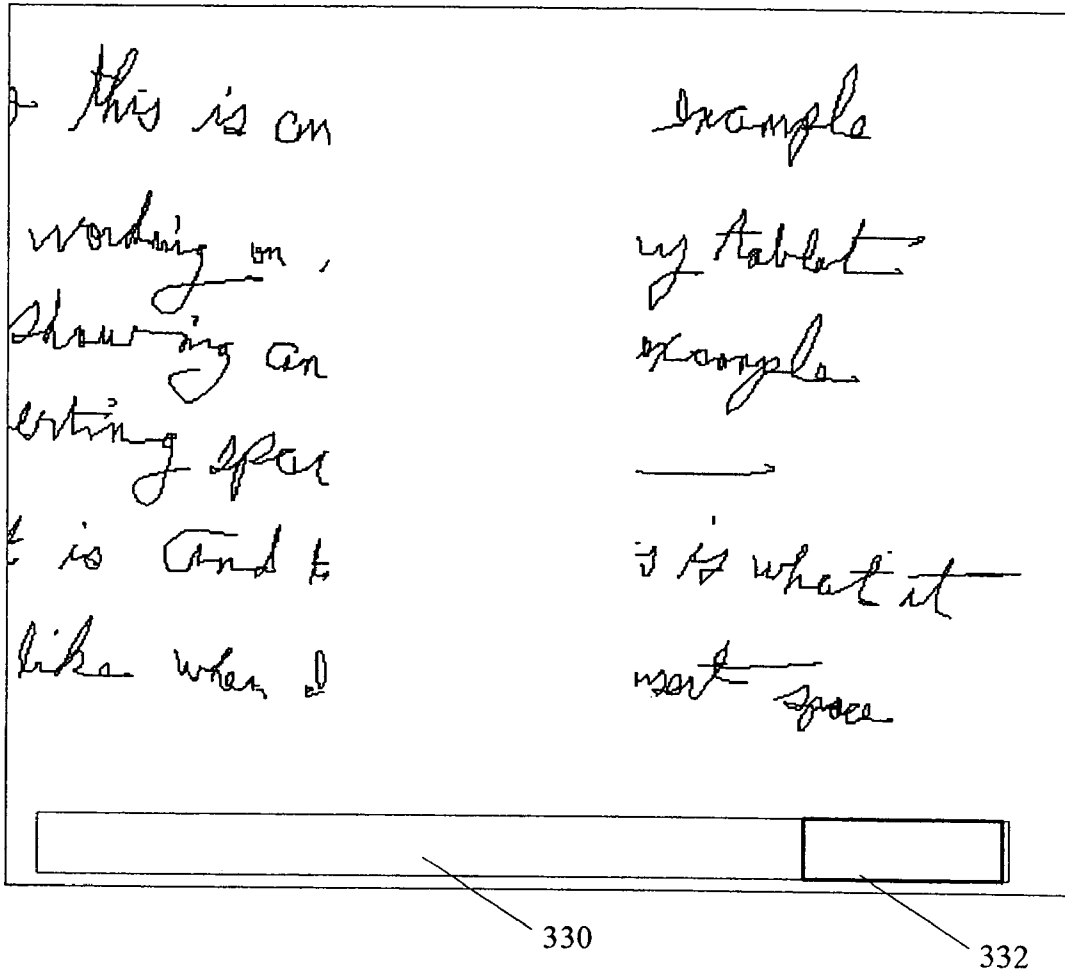 this is an example
working on my tablet
showing an example
erting spac
t is and t s is what it
like when I nsert space
330
332